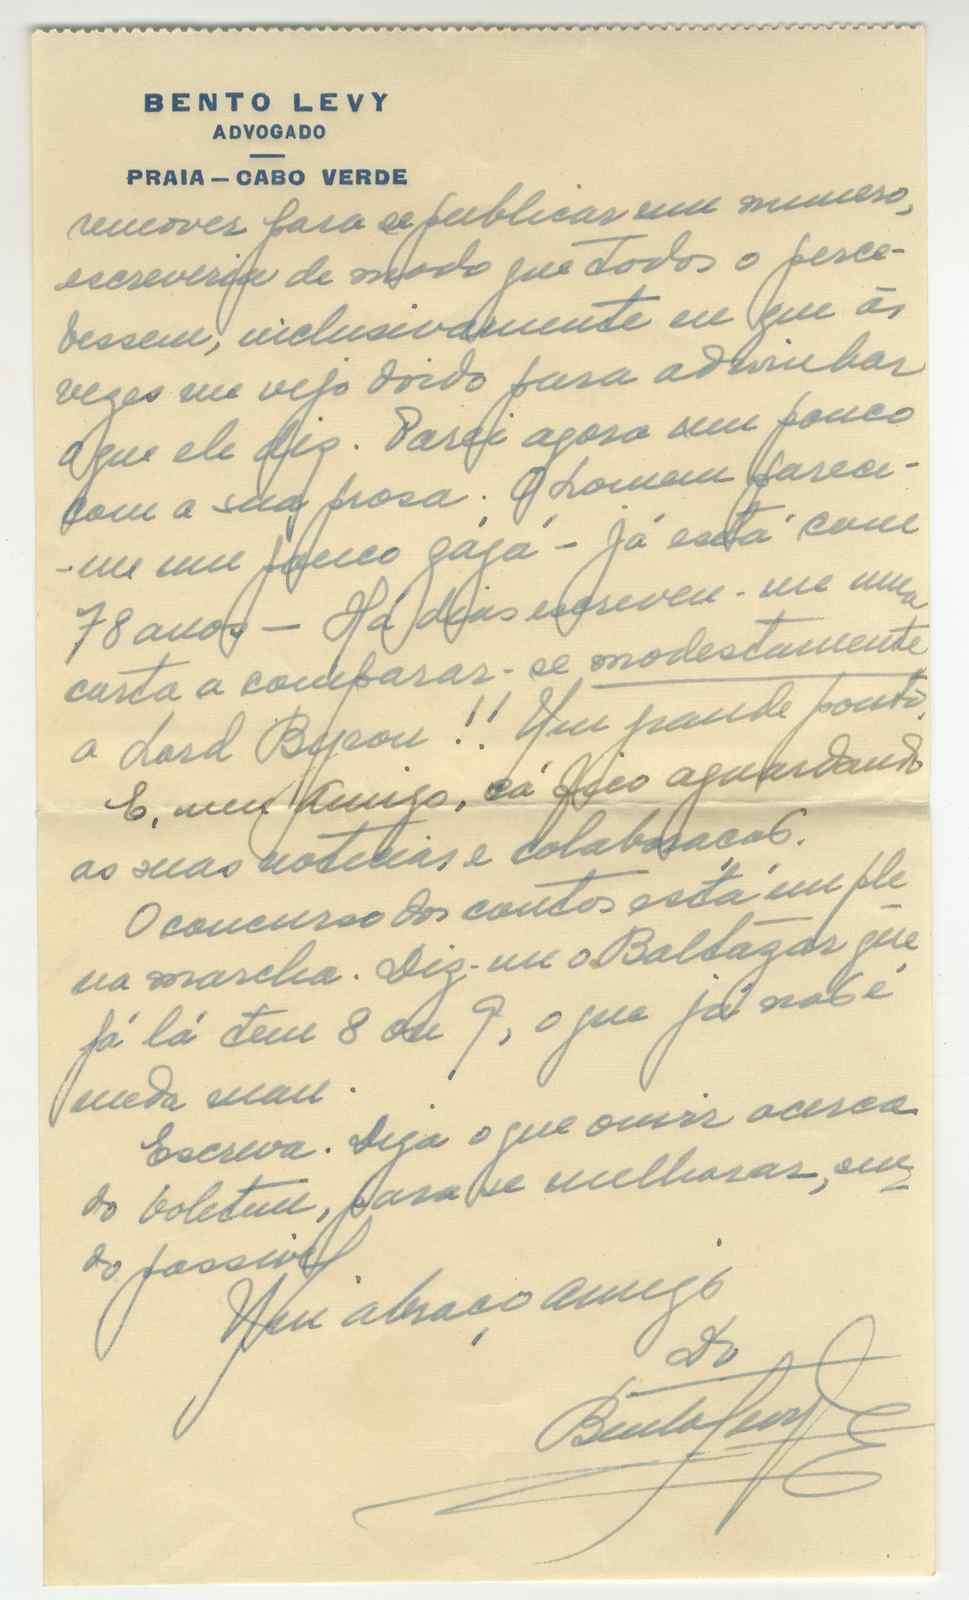 BENTO LEVY
ADVOGADO
PRAIA — CABO VERDE
remover para se publicar um numero,
escreveria de modo que todos o perce-
bessem, inclusivamente eu que às
vezes me vejo doido para adivinhar
o que ele diz. Parei agora um pouco
com a sua prosa. O homem parece-
-me um pouco gágá - já está com
78 anos — Há dias escreveu-me uma
carta a comparar-se modestamente
a Lord Byron!! Um grande ponto.
E, meu Amigo, cá fico aguardando
as suas noticias e colaboração.
O concurso dos contos está em ple
na marcha. Diz-me o Baltazar que
já lá tem 8 ou 9, o que já não é
nada mau.
Escreva. Diga o que ouvir acerca
do boletim, para se melhorar, sen-
do possivel
Um abraço amigo
Do
Bento Levy